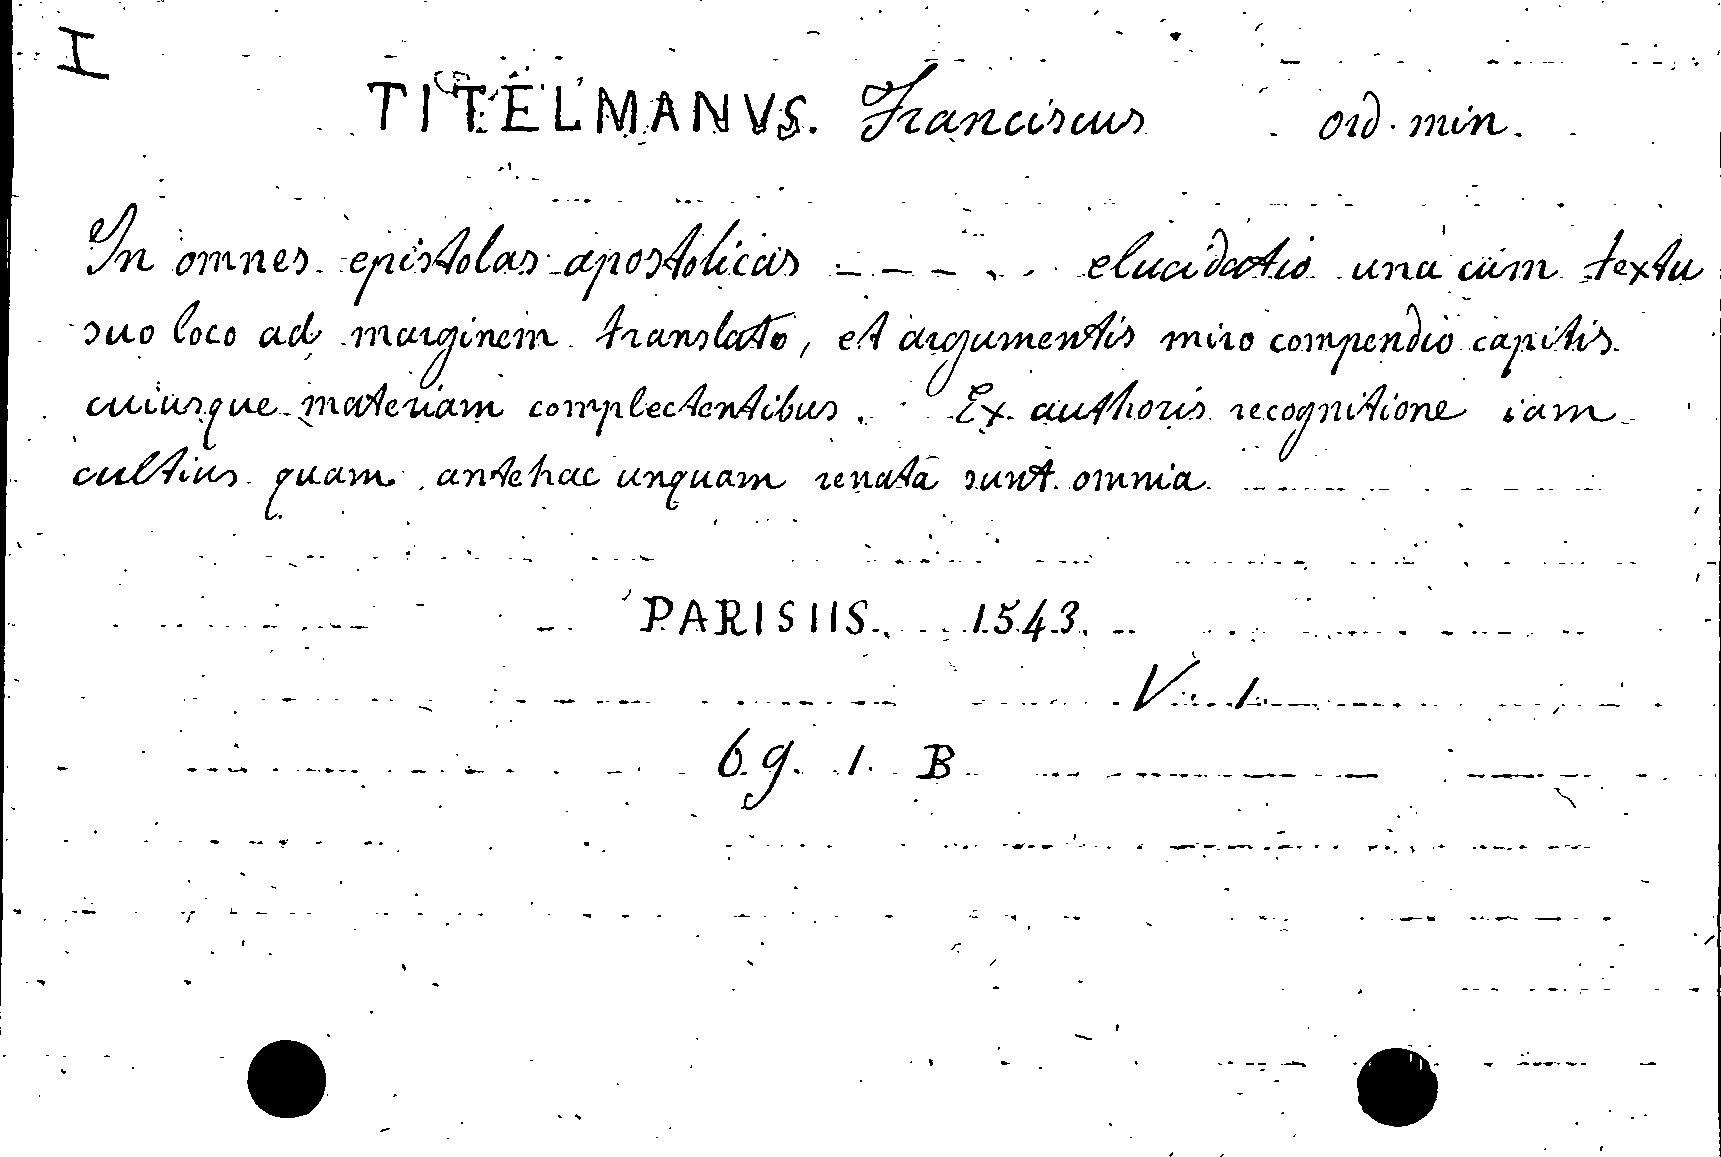 I
TITELMANVS. Franciscus ord. min.
In omnes epistolas apostolicas - - - - . . elucidatio una cum textu
suo loco ad marginem translato, et argumentis miro compendio capitis
cuiusque materiam complectentibus. Ex authoris recognitione iam
cultius quam antehac unquam renata sunt omnia
PARISIIS. 1543.
V. 1
69. 1. B